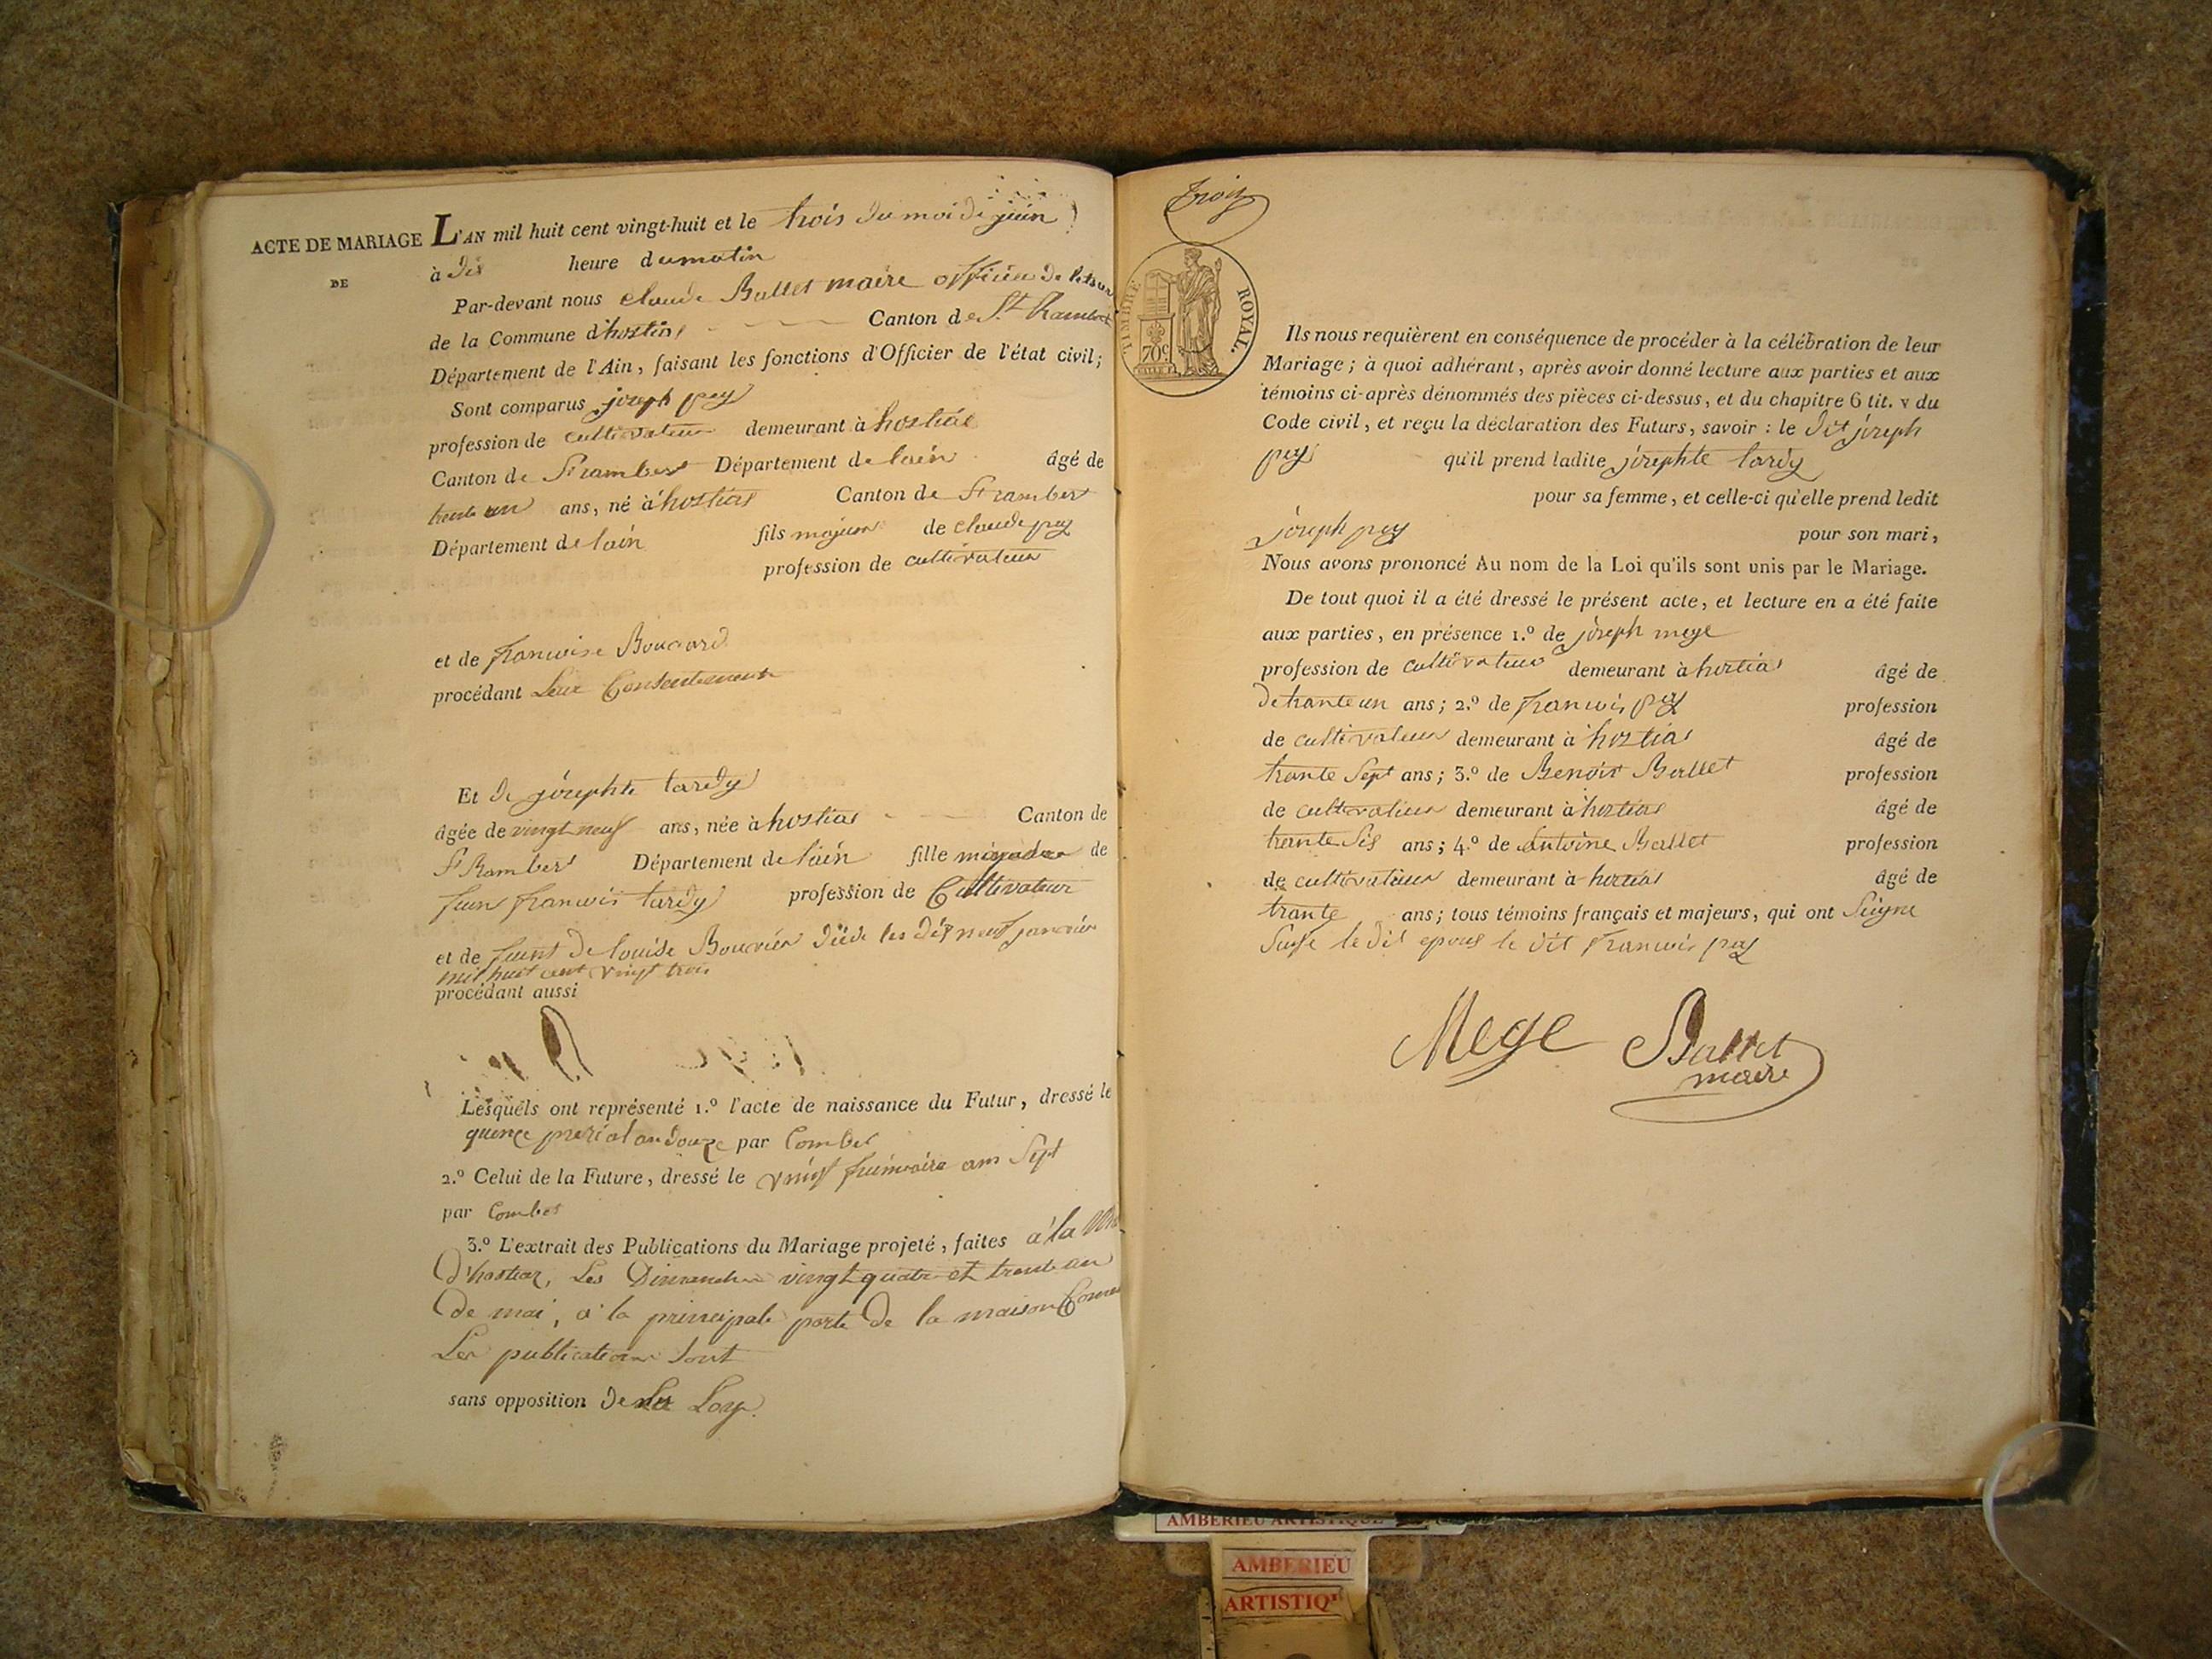 ACTE DE MARIAGE
DE
L'AN mil huit cent vingt-huit et le trois du moi de juin
à dix heure du matin
Par-devant nous claude Ballet maire officier de
de la Commune d'hostias Canton de St Rambert
Département de l'Ain, faisant les fonctions d'Officier de l'état civil;
Sont comparus joseph pey
profession de cultivateur demeurant à hostias
Canton de St rambert Département de lain âgé de
trente un ans, né à hostias Canton de St rambert
Département de lain fils majeur de claude pey
profession de cultivateur
et de francoise Bouvard
procédant Leur Consentement
Et de josephte tardy
âgée de vingt neuf ans, née à hostias Canton de
St Rambert Département de lain fille majeure de
jean francois tardy profession de Cultivateur
et de de louise Bouvier les dix neuf janvier
mil huit cent vingt trois
procédant aussi
Lesquels ont représenté 1.º l'acte de naissance du Futur, dressé le
quinze prerial an douze par Combet
2.º Celui de la Future, dressé le vingt frimaire ans Sept
par Combet
3.º L'extrait des Publications du Mariage projeté, faites à la
D'hostiaz, Les Dimanche vingt quatre et trente un
De mai, a la principale porte De la maison
Les publications Sont
sans opposition De La Loy.
trois
TIMBRE ROYAL.
70c
Ils nous requièrent en conséquence de procéder à la célébration de leur
Mariage; à quoi adhérant, après avoir donné lecture aux parties et aux
témoins ci-après dénommés des pièces ci-dessus, et du chapitre 6 tit. v du
Code civil, et reçu la déclaration des Futurs, savoir : le Dit joseph
pey qu'il prend ladite josephte tardy
pour sa femme, et celle-ci qu'elle prend ledit
joseph pey pour son mari,
Nous avons prononcé Au nom de la Loi qu'ils sont unis par le Mariage.
De tout quoi il a été dressé le présent acte, et lecture en a été faite
aux parties, en présence 1.º de joseph mege
profession de cultivateur demeurant à hostias âgé de
de trante un ans; 2.º de francois pey profession
de cultivateur demeurant à hostias âgé de
trante Sept ans; 3.º de Benoit Ballet profession
de cultivateur demeurant à hostias âgé de
trante Sis ans; 4.º de antoine Ballet profession
de cultivateur demeurant à hostias âgé de
trante ans; tous témoins français et majeurs, qui ont Signe
le dit epous le dit francois pey
Mege Ballet
maire
AMBERIEU ARTISTIQUE
AMBERIEU
ARTISTIQ